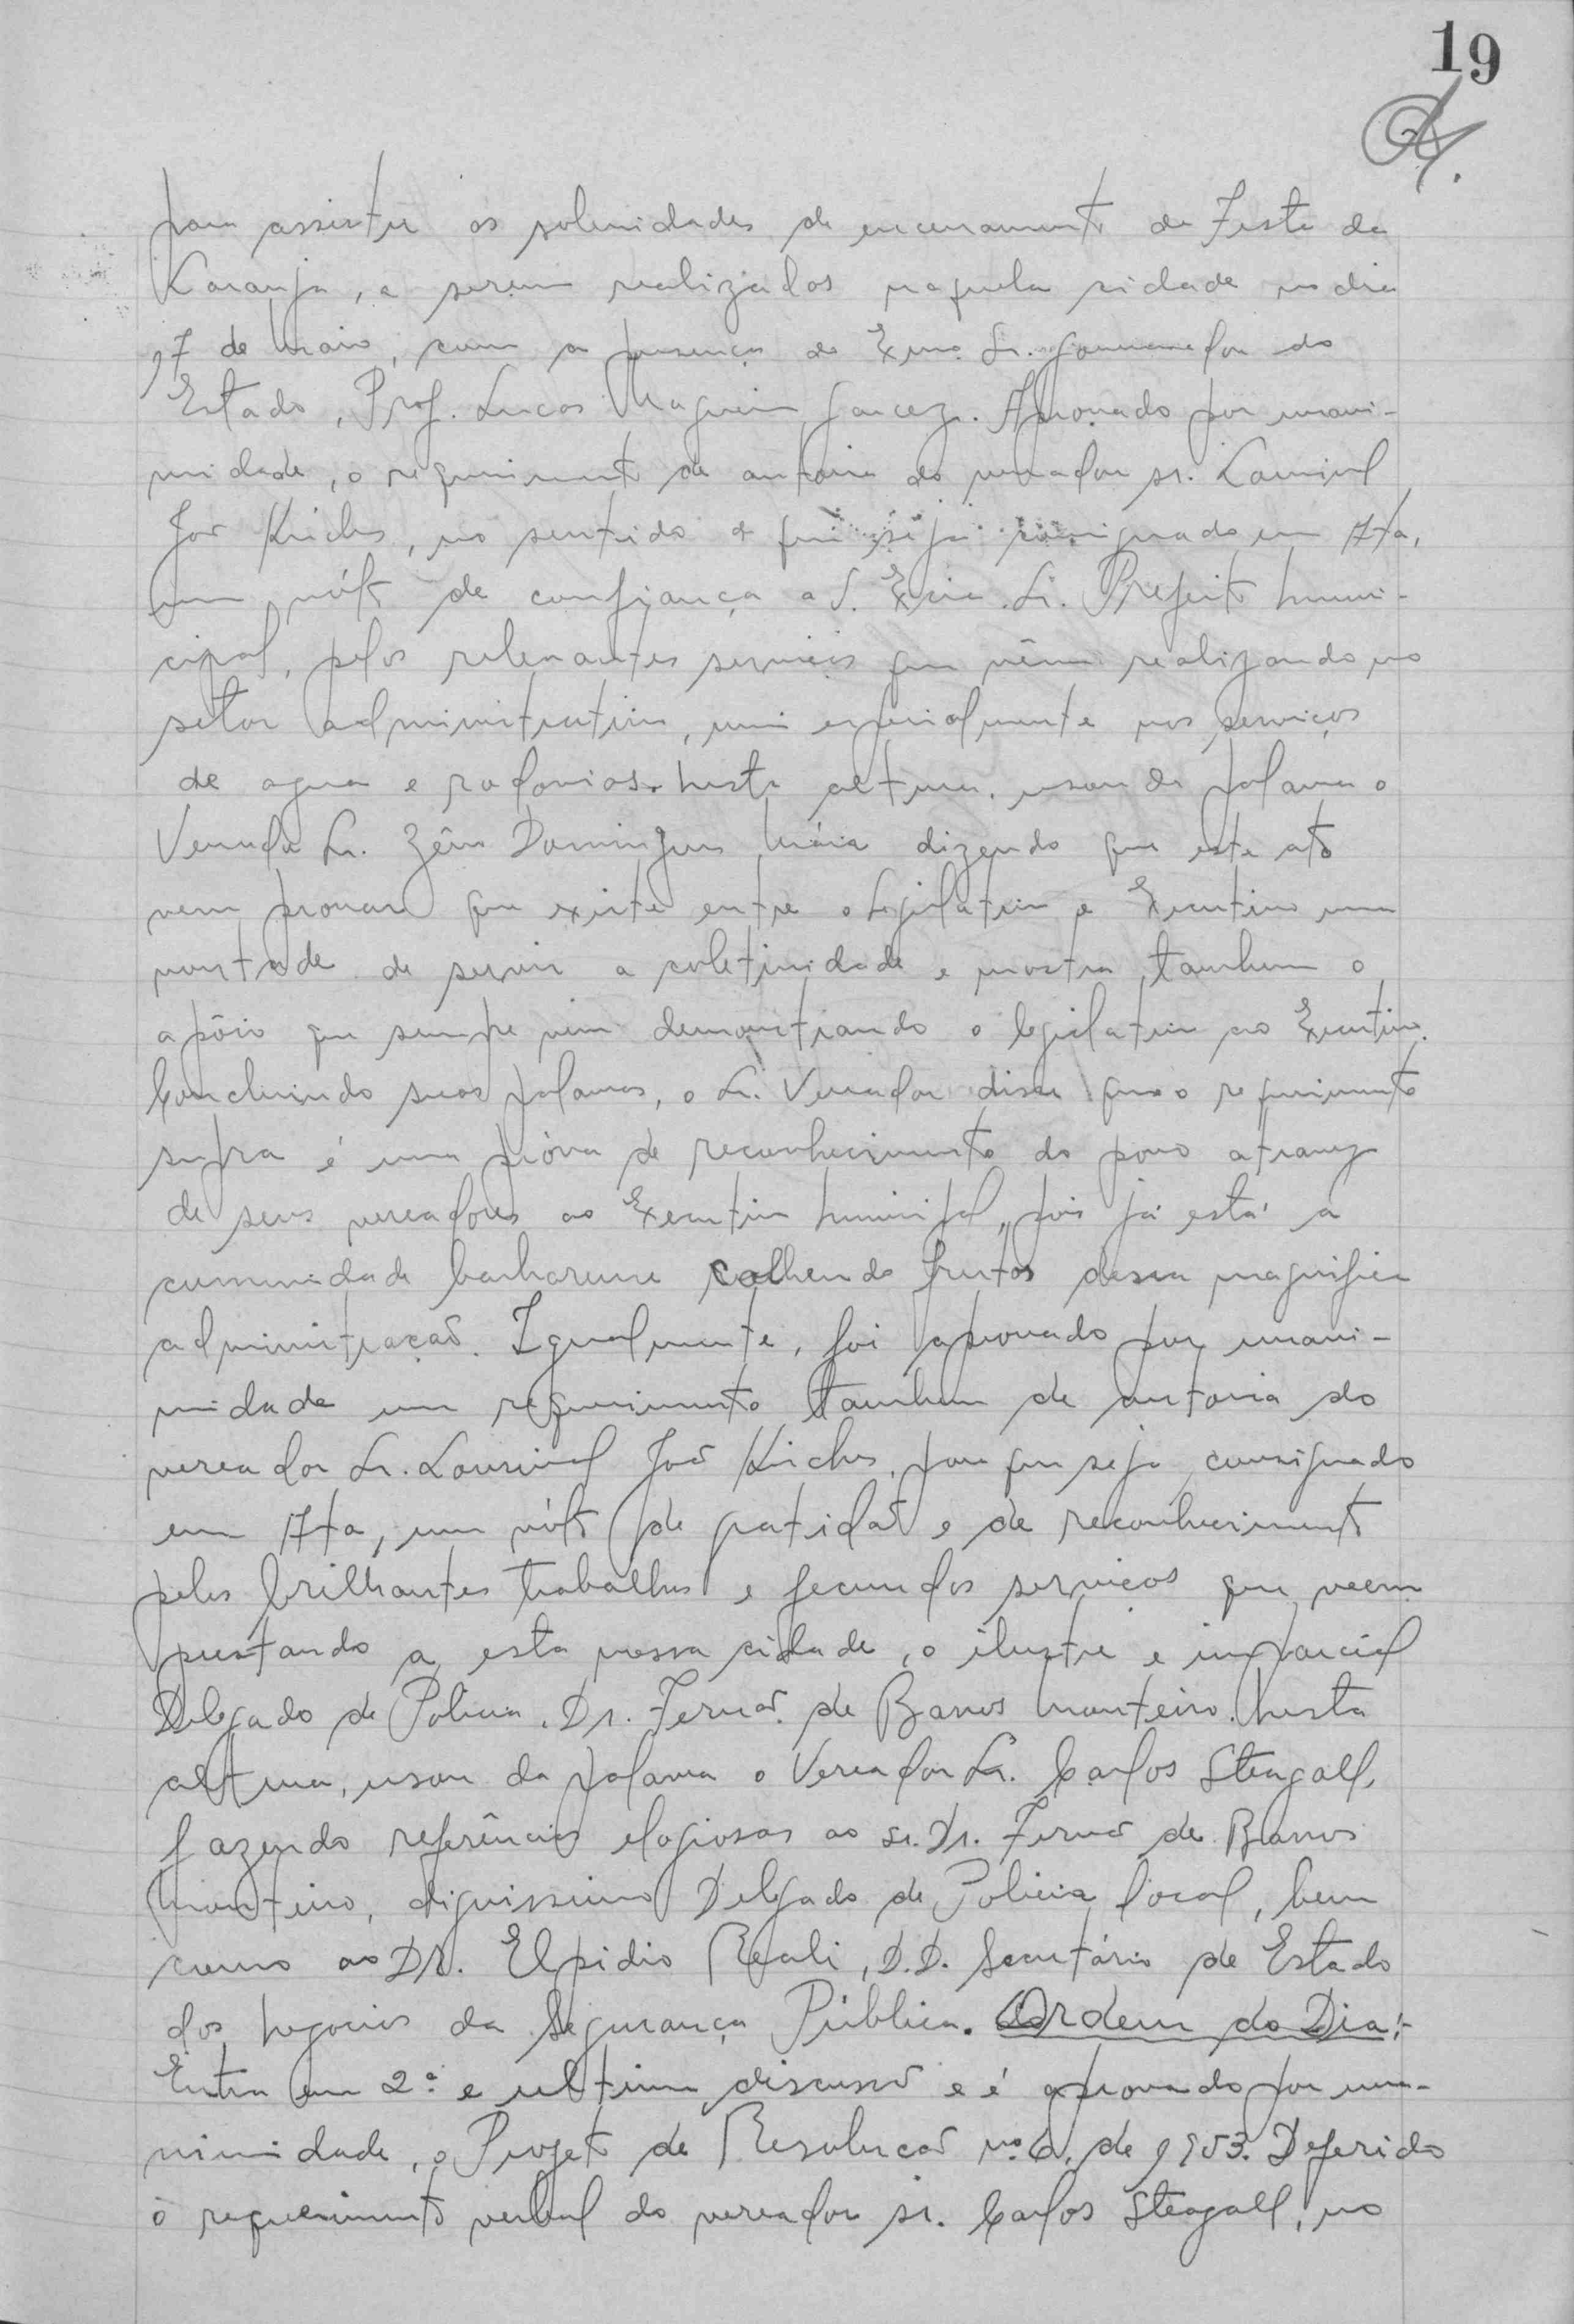 19
para assistir as solenidades de encerramento da Festa da
Laranja, a serem realizados naquela cidade no dia
17 de Maio, com a presença do Exmo. Sr. Governador do
Estado, Prof. Lucas Nogueira Garcez. Aprovado por unani-
midade, o requerimento de autoria do vereador sr. Lourival
José Kirchs, no sentido de que seja consignado em Ata,
um vóto de confiança a S. Excia. Sr. Prefeito Muni-
cipal, pelos relevantes serviços que vêm realizando no
setor administrativo, mui especialmente nos serviços
de agua e rodovias. Nesta altura, usou da palavra o
Vereador Sr. Domingues Máia dizendo que este ato
vem provar que existe entre o Legislativo e Executivo uma
vontade de servir a coletividade e mostra tambem o
apôio que sempre vem demonstrando o legislativo ao Executivo.
Concluindo suas palavras, o Sr. Vereador disse que o requerimento
supra é uma próva de reconhecimento do povo atravez
de seus vereadores ao Executivo Municipal, pois já está a
comunidade barbarense colhendo frutos dessa magnifica
administração. Igualmente, foi aprovado por unani-
midade um requerimento tambem de autoria do
vereador Sr. Lourival José Kirchs, para que seja consignado
em Ata, um vóto de gratidão e de reconhecimento
pelos brilhantes trabalhos e fecundos serviços que veem
prestando a esta nossa cidade, o ilustre e imparcial
Delegado de Policia, Dr. Fernão de Barros Monteiro. Nesta
altura, usou da palavra o Vereador Sr. Carlos Steagall,
fazendo referências elogiosas ao sr. Dr. Fernão de Barros
Monteiro, dignissimo Delegado de Policia local, bem
como ao DR. Elpidio Reali, D.D. Secretário de Estado
dos Negocios da Segurança Pública. Ordem do Dia:-
Entra em 2ª e ultima discussão e é aprovado por una-
nimidade, o Projeto de Resolução nº 6, de 1953. Deferido
o requerimento verbal do vereador sr. Carlos Steagall, no